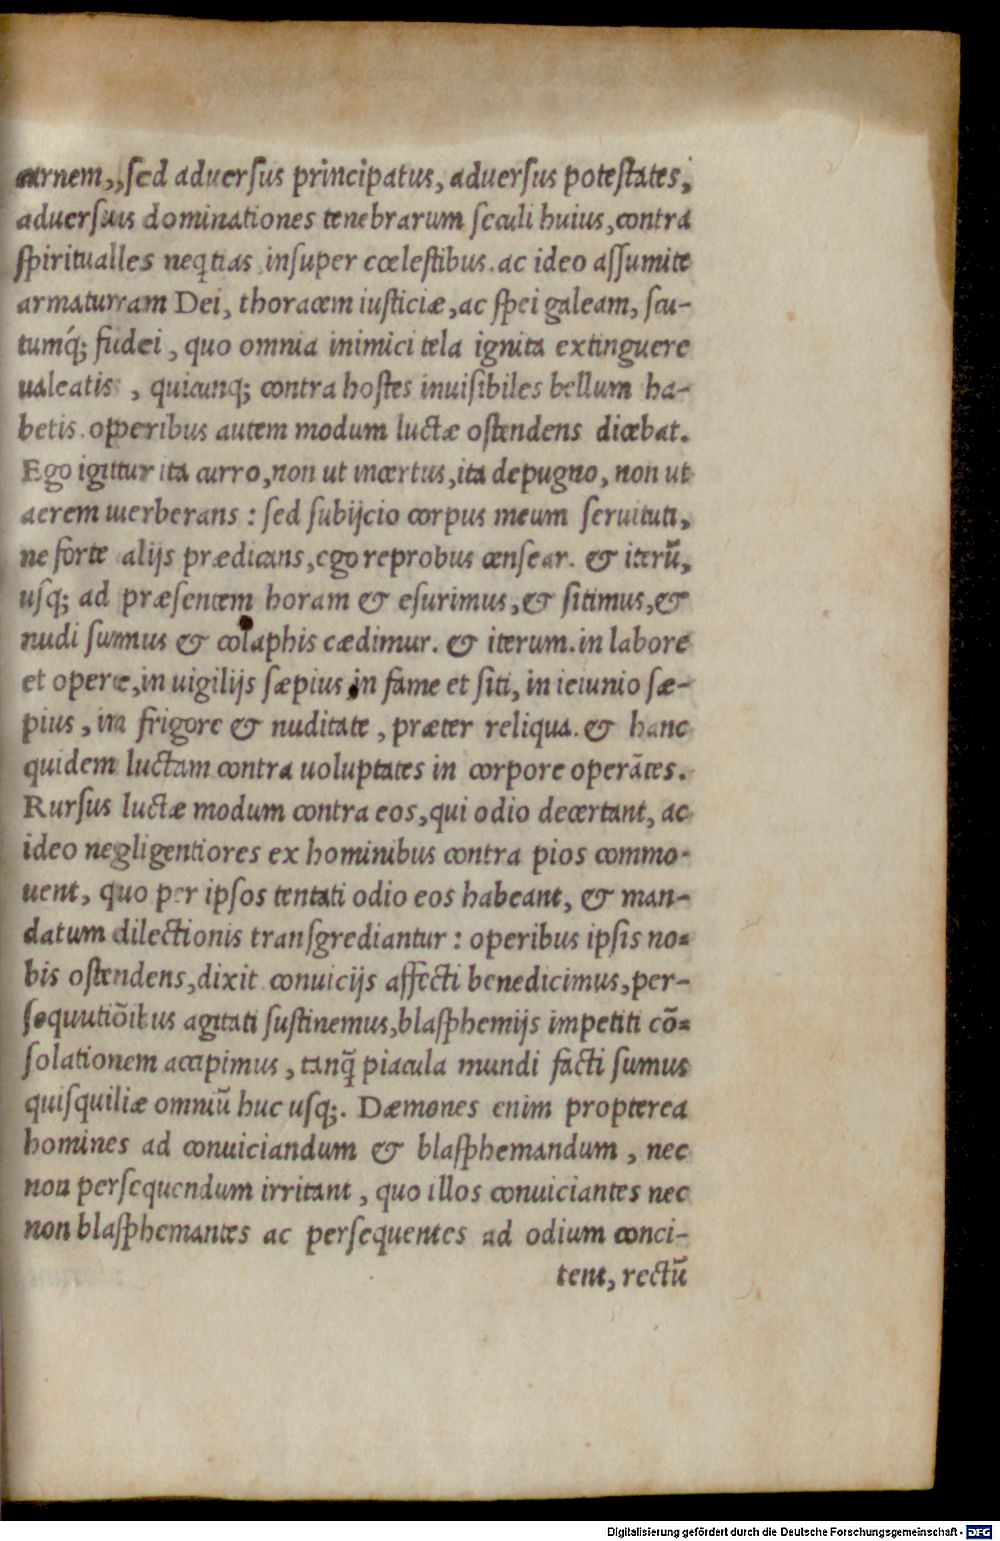 carnem, sed aduersus principatus, aduersus potestates,
aduersus dominationes tenebrarum seculi huius, contra
spirituales neq̃tias insuper cœlestibus. ac ideo assumite
armaturam Dei, thoracem iusticiæ, ac spei galeam, scu-
tumq́; fidei, quo omnia inimici tela ignita extinguere
ualeatis, quicunq; contra hostes inuisibiles bellum ha-
betis. operibus autem modum luctæ ostendens dicebat.
Ego igitur ita curro, non ut incertus, ita depugno, non ut
aerem uerberans: sed subijcio corpus meum seruituti,
ne forte alijs prædicans, ego reprobus censear. & iterũ,
usq; ad præsentem horam & esurimus, & sitimus, &
nudi sumus & colaphis cædimur. & iterum. in labore
et opere, in uigilijs sæpius in fame et siti, in ieiunio sæ-
pius, in frigore & nuditate, præter reliqua. & hanc
quidem luctam contra uoluptates in corpore operãtes.
Rursus luctæ modum contra eos, qui odio decertant, ac
ideo negligentiores ex hominibus contra pios commo-
uent, quo per ipsos tentati odio eos habeant, & man-
datum dilectionis transgrediantur: operibus ipsis no-
bis ostendens, dixit conuicijs affecti benedicimus, per-
sequutiõibus agitati sustinemus, blasphemijs impetiti cõ-
solationem accipimus, tanq̃ piacula mundi facti sumus
quisquiliæ omniũ huc usq;. Dæmones enim propterea
homines ad conuiciandum & blasphemandum, nec
non persequendum irritant, quo illos conuiciantes nec
non blasphemantes ac persequentes ad odium conci-
tent, rectũ
Digitalisierung gefördert durch die Deutsche Forschungsgemeinschaft - DFG